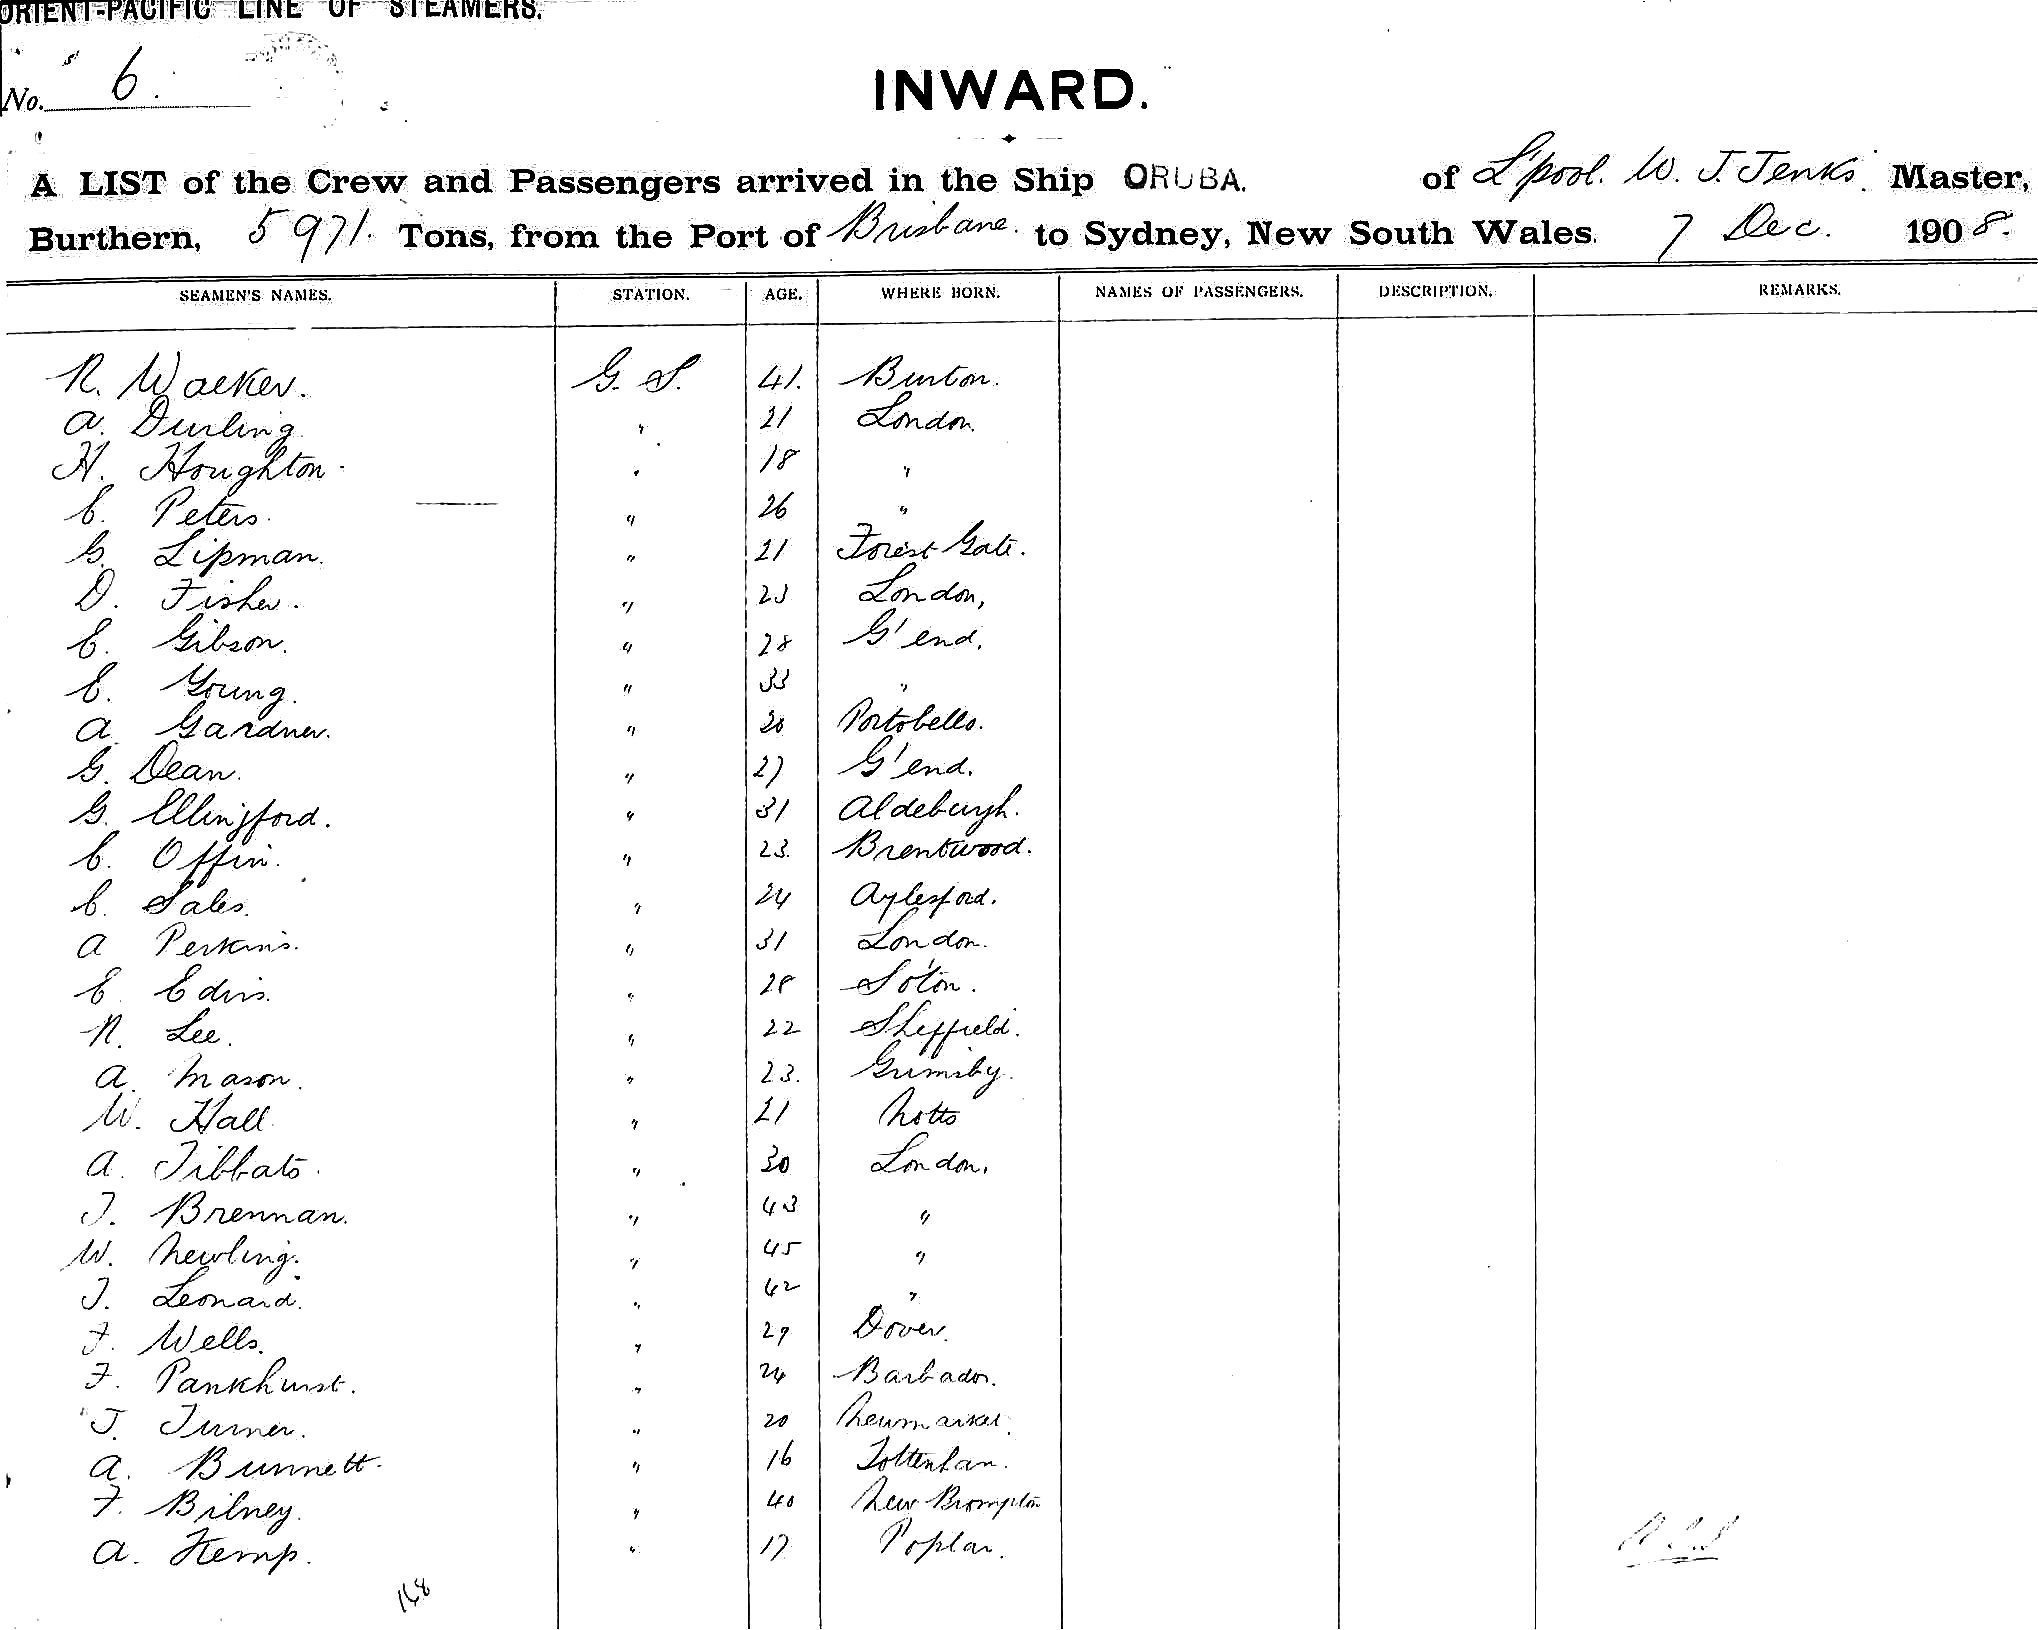 ORIENT-PACIFIC LINE OF STEAMERS.
No. 6.
INWARD.
A LIST of the Crew and Passengers arrived in the Ship ORUBA. of L'pool. W. J. Jenks. Master,
Burthern, 5971. Tons, from the Port of Brisbane. to Sydney, New South Wales. 7 Dec. 1908.
SEAMEN'S NAMES. STATION. AGE. WHERE BORN. NAMES OF PASSENGERS. DESCRIPTION. REMARKS.
R. Walker. G. S. 41. Burton.
A. Durling " 21 London.
H. Houghton. " 18 "
C. Peters. " 26 "
G. Lipman. " 21 Forest Gate.
D. Fisher. " 23 London,
E. Gibson. " 28 G'end.
E. Young. " 33 "
A. Gardner. " 20 Portobello.
G. Dean. " 27 G'end.
G. Ellingford. " 31 Aldeburgh.
C. Offin. " 23. Brentwood.
C. Sales. " 24 Aylesford.
A Perkins. " 31 London.
E. Edins. " 28 So'ton.
R. Lee. " 22 Sheffield.
A. Mason. " 23. Grimsby.
W. Hall " 21 Notts
A. Tibbats. " 30 London.
J. Brennan. " 43 "
W. Newling. " 45 "
J. Leonard. " 42 "
F. Wells. " 29 Dover.
F. Pankhurst. " 24 Barbados.
J. Turner. " 20 Newmarket.
A. Bunnett. " 16 Tottenham.
F. Bilney. " 40 New Brompton
A. Kemp. " 17 Poplar.
168